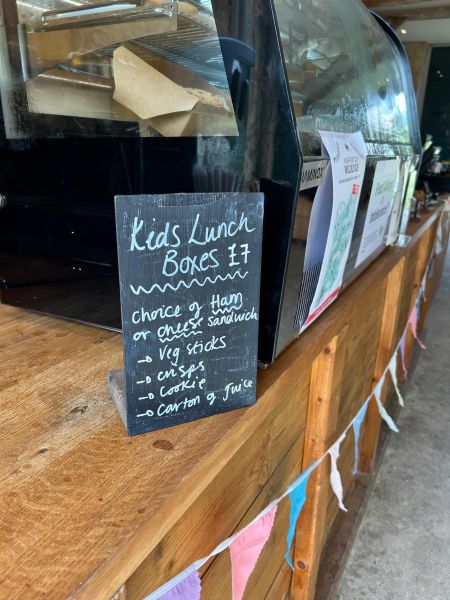 Kids Lunch
Boxes £7
Choice of Ham
or cheese sandwich
→ Veg sticks
→ crisps
→ Cookie
→ Carton of Juice